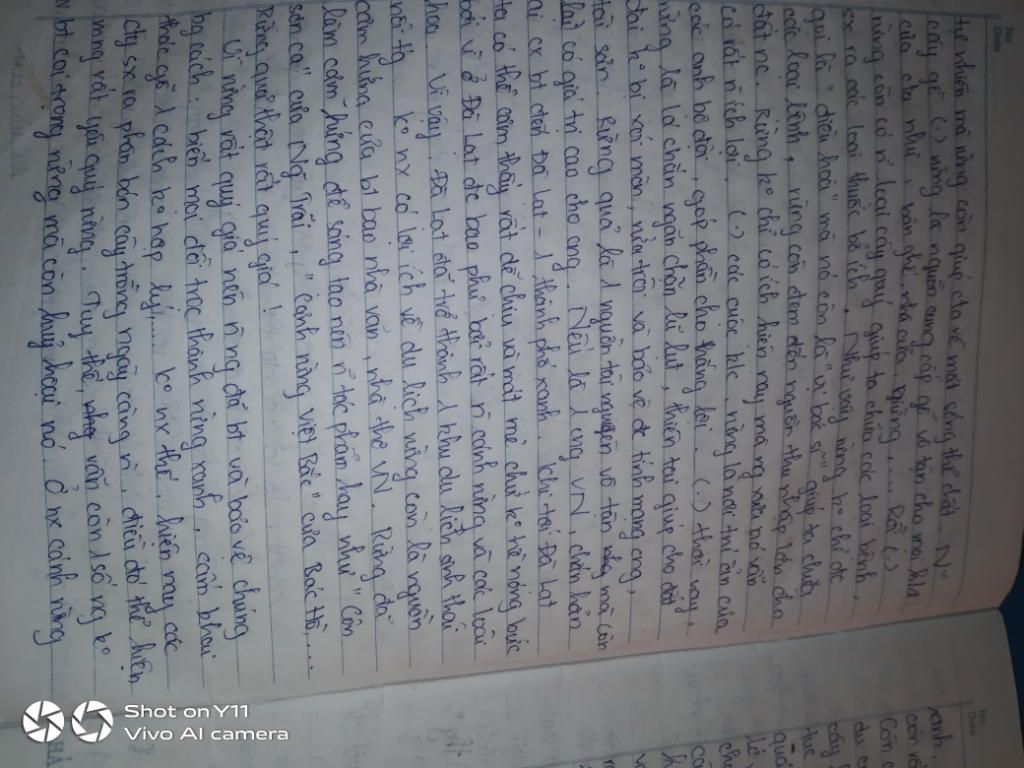 tự nhiên mà rừng còn giúp cho về mặt sống thể chất. N°
cây gỗ (.) rừng là nguồn cung cấp gỗ vô tận cho mọi nhà
của cta như: bàn ghế, nhà cửa, giường,... Rồi (.)
rừng còn có n~ loại cây quý giúp ta chữa các loại bệnh,
sx ra các loại thuốc bổ ích. Như vậy rừng k° chỉ đc
gọi là "điều hoà" mà nó còn là "vị bác sĩ" giúp ta chữa
các loại bệnh, rừng còn đem đến nguồn thu nhập lớn cho
đất nc. Rừng k° chỉ có ích hiện nay mà ng xưa nó vẫn
có rất n` ích lợi. (.) các cuộc k/c, rừng là nơi trú ẩn của
các anh bộ đội, góp phần cho thắng lợi. (.) thời nay,
rừng là lá chắn ngăn chặn lũ lụt, thiên tai giúp cho đất
đai k° bị xói mòn, nửa trôi và bảo vệ đc tính mạng cng,
tài sản. Rừng quả là 1 nguồn tài nguyên vô tận mà còn
lại có giá trị cao cho cng. Nếu là 1 ng VN, chắn hản
ai cx bt đến Đà Lạt - 1 thành phố xanh. Khi tới Đà Lạt
ta có thể cảm thấy rất dễ chịu và mát mẻ chứ k° hề nóng bức
bởi vì ở Đà Lạt đc bao phủ bởi rất n` cánh rừng và các loài
hoa. Vì vậy, Đà Lạt đã trở thành 1 khu du lịch sinh thái
nổi tg. K° nx có lợi ích về du lịch rừng còn là nguồn
cảm hứng của bt bao nhà văn, nhà thơ VN. Rừng đã
làm cảm hứng để sáng tạo nên n~ tác phẩm hay như "Côn
sơn ca" của Ng Trãi, "cảnh rừng Việt Bắc" của Bác Hồ,...
Rừng quả thật rất quý giá!
Vì rừng rất quý giá nên n` ng đã bt và bảo vệ chúng
bằng cách: biến mọi đồi trọc thành rừng xanh, cấm khai
thác gỗ 1 cách k° hợp lý,... K° nx thế, hiện nay các
cty sx ra phân bón cây trồng ngày càng n`, điều đó thể hiện
mng rất yêu quý rừng. Tuy thế, vẫn còn 1 số ng k°
bt coi trọng rừng mà còn huỷ hoại nó. Ở nx cánh rừng
Shot on Y11
Vivo AI camera